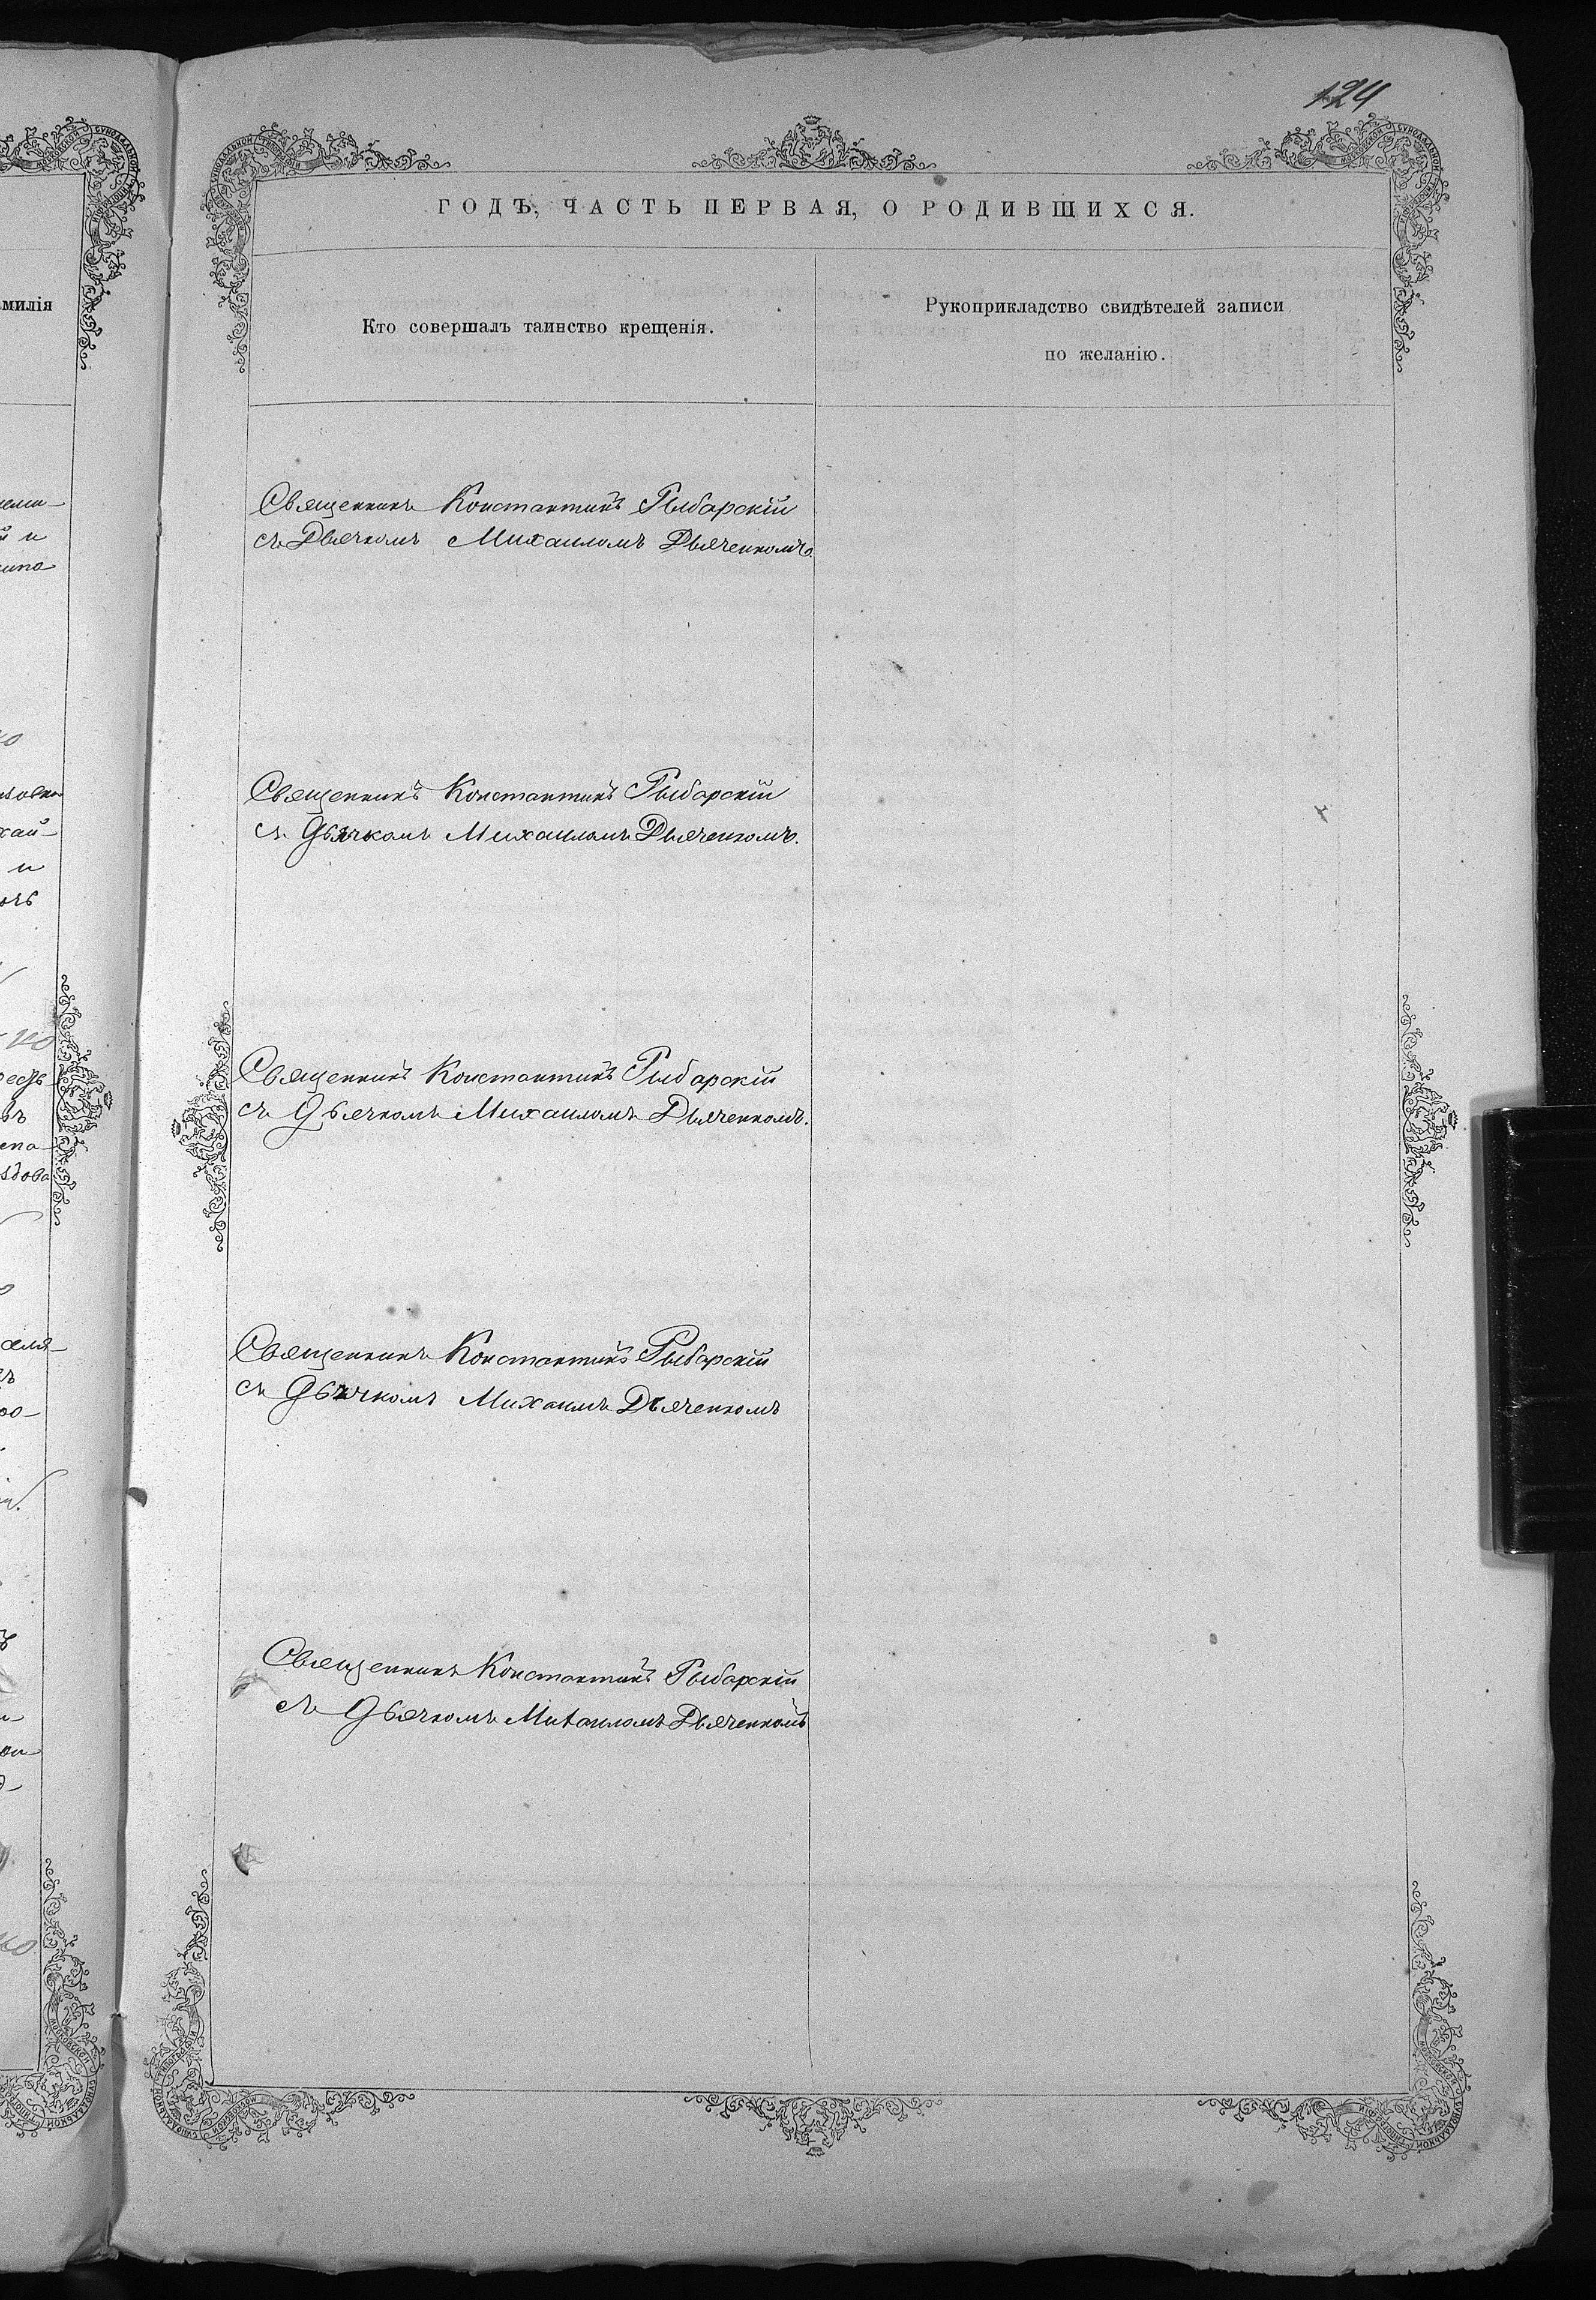 124
ГОДЪ, ЧАСТЬ ПЕРВАЯ, О РОДИВШИХСЯ.
амилія
Кто совершалъ таинство крещенія.
Рукоприкладство свидѣтелей записи
по желанію.
Священникъ Константинъ Рыбарскій
съ Дьячкомъ Михаиломъ Дьяченкомъ.
Священникъ Константинъ Рыбарскій
съ Дьячкомъ Михаиломъ Дьяченкомъ.
Священникъ Константинъ Рыбарскій
съ Дьячкомъ Михаиломъ Дьяченкомъ.
Священникъ Константинъ Рыбарскій
съ Дьячкомъ Михаимъ Дьяченкомъ
Священникъ Константинъ Рыбарскій
съ Дьячкомъ Михаиломъ Дьяченкомъ